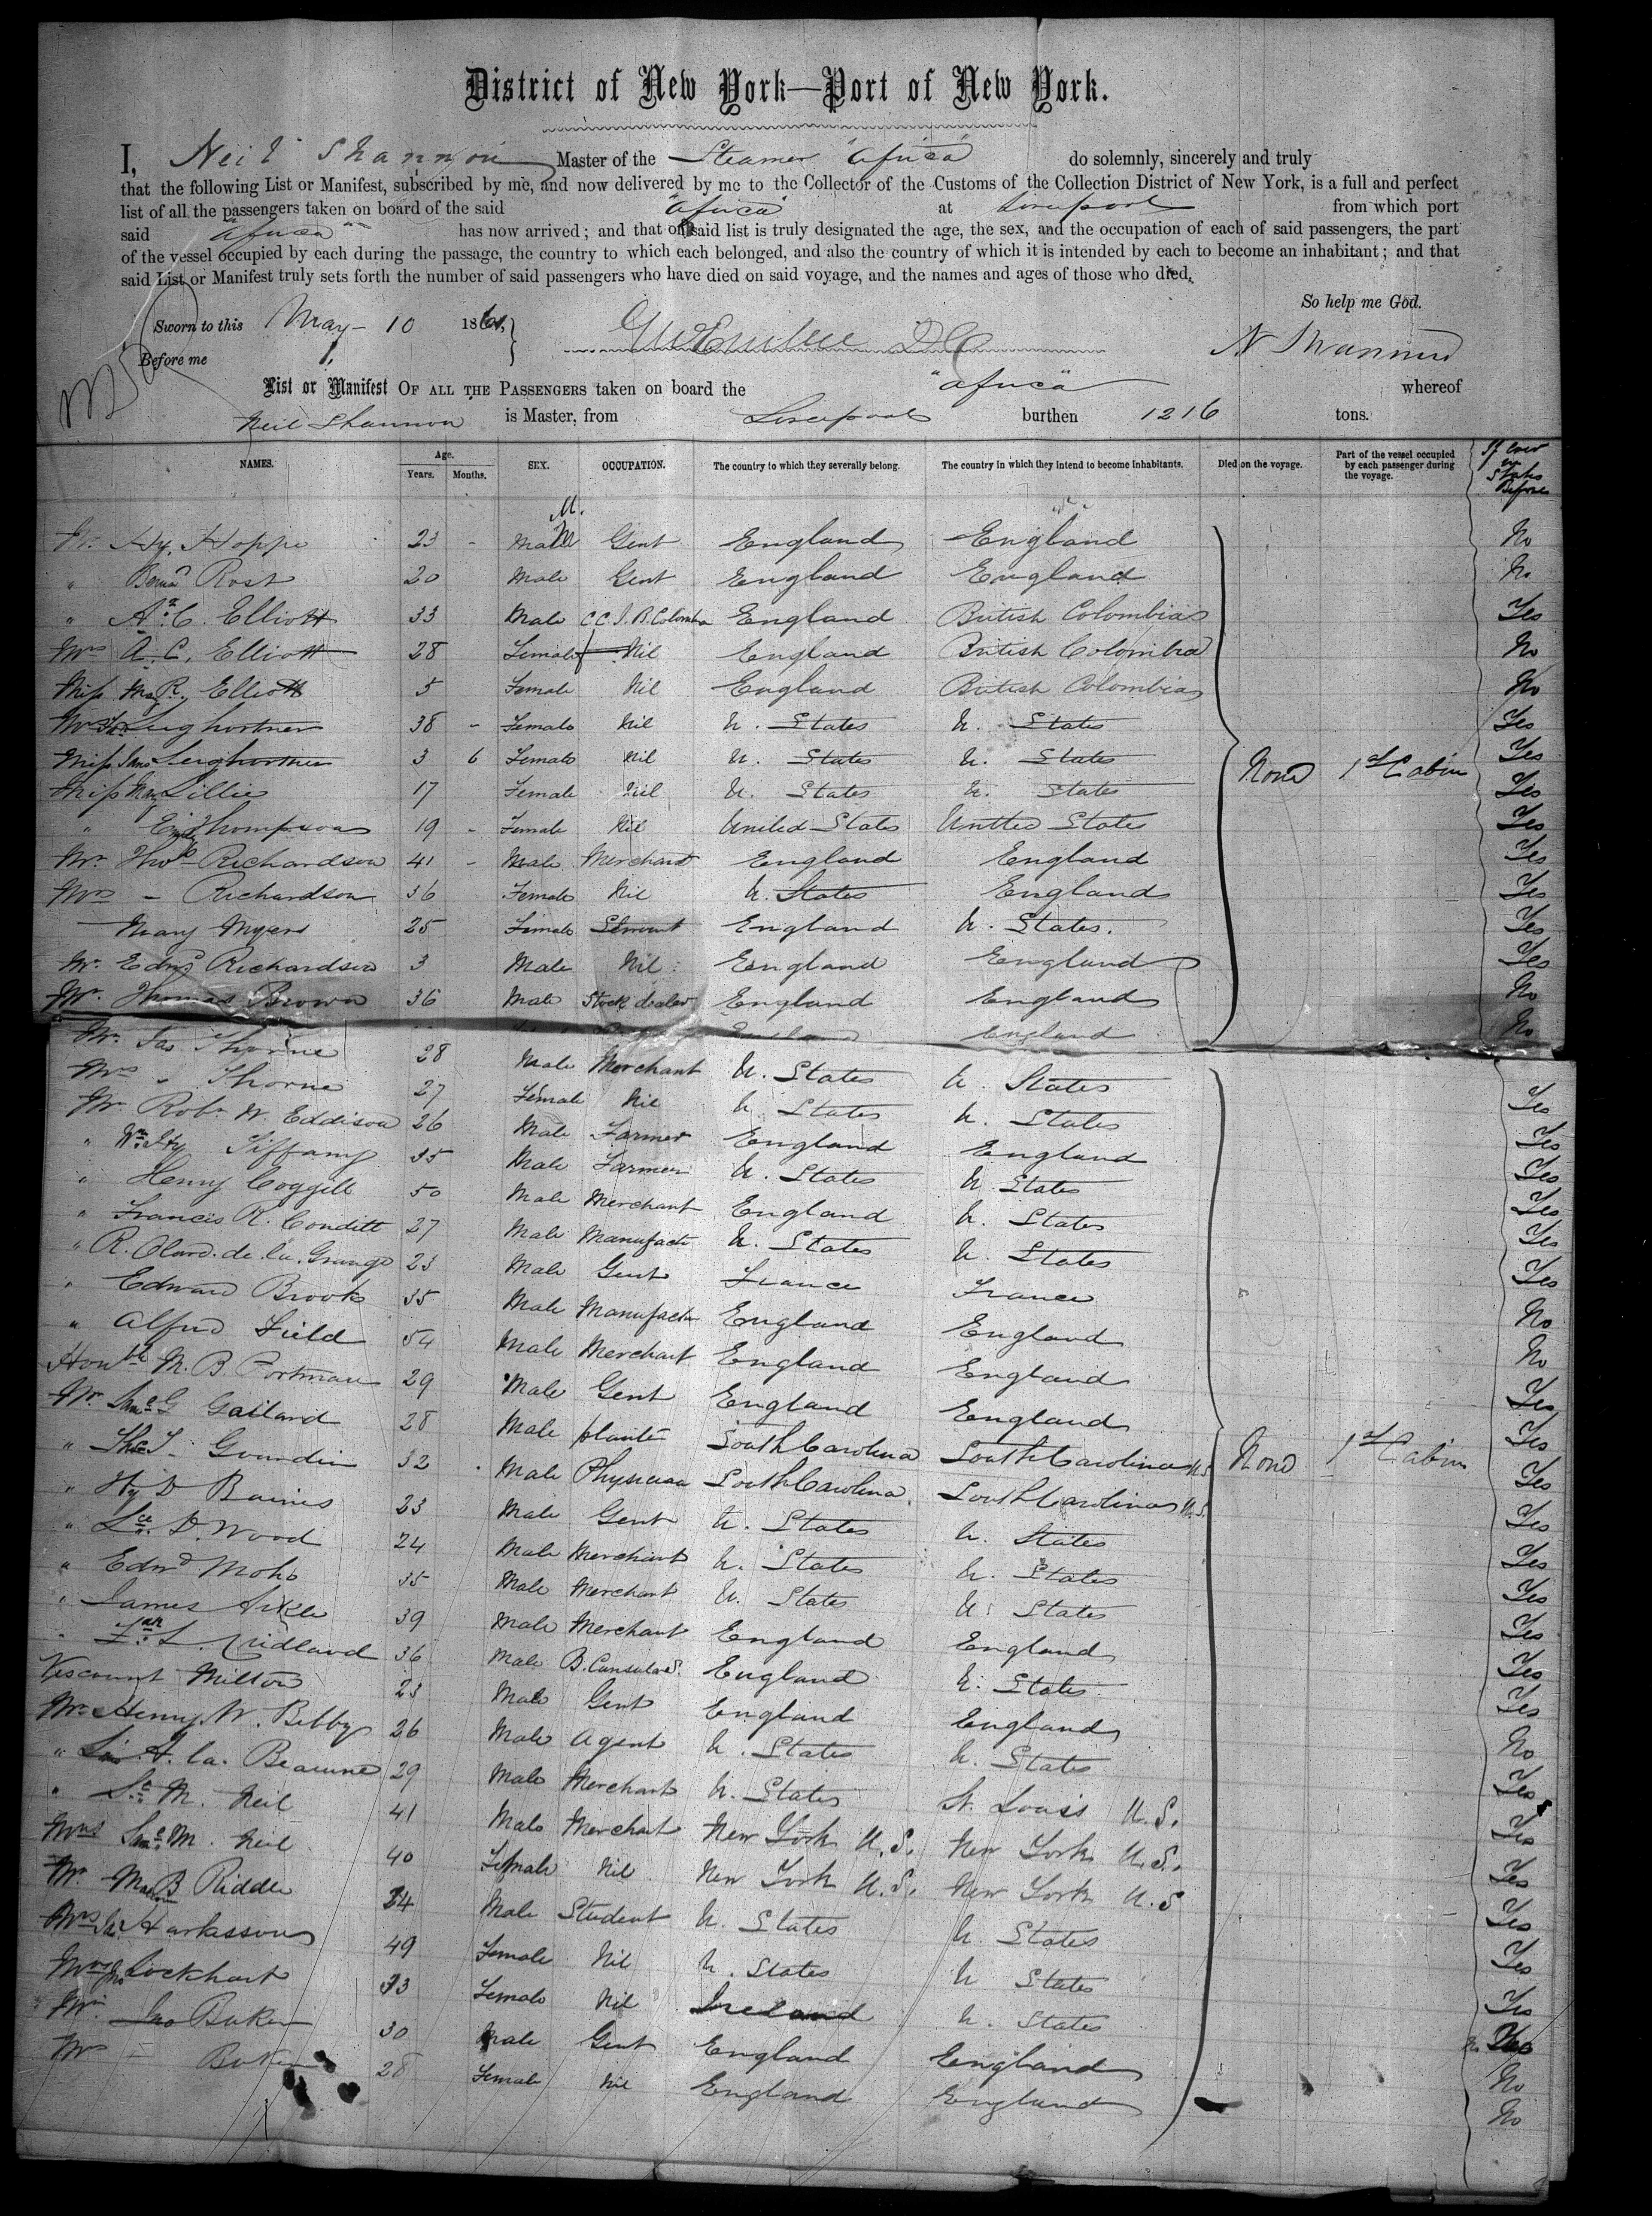 District of New York—Port of New York.
I, Neil Shannon Master of the Steamer "Africa" do solemnly, sincerely and truly
that the following List or Manifest, subscribed by me, and now delivered by me to the Collector of the Customs of the Collection District of New York, is a full and perfect
list of all the passengers taken on board of the said "Africa" at Liverpool from which port
said "Africa" has now arrived; and that on said list is truly designated the age, the sex, and the occupation of each of said passengers, the part
of the vessel occupied by each during the passage, the country to which each belonged, and also the country of which it is intended by each to become an inhabitant; and that
said List or Manifest truly sets forth the number of said passengers who have died on said voyage, and the names and ages of those who died.
So help me God.
Sworn to this May - 10 1861,
Before me N Shannon
List or Manifest OF ALL THE PASSENGERS taken on board the "Africa" whereof
Neil Shannon is Master, from Liverpool burthen 1216 tons.
NAMES. Age. Years. Months. SEX. OCCUPATION. The country to which they severally belong. The country in which they intend to become inhabitants. Died on the voyage. Part of the vessel occupied by each passenger during the voyage. If ever in States Before
Mr. Hy. Hoppe 23 - Male Gent England England No
" Rost 20 Male Gent England England No
" A. C. Elliott 33 Male England British Colombia Yes
Mrs A. C. Elliott 28 Female Nil England British Colombia No
Miss R. Elliott 5 Female Nil England British Colombia No
38 - Female Nil U. States U. States Yes
Miss 3 6 Female Nil U. States U. States Yes
Miss May Lillie 17 Female Nil U. States U. States Yes
" Thompson 19 - Female Nil United States United States Yes
None 1st Cabin
Mr. Thos Richardson 41 - Male Merchant England England Yes
Mrs - Richardson 36 Female Nil U. States England Yes
Mary Myers 25 Female Servant England U. States. Yes
Mr. Edwd Richardson 3 Male Nil England England Yes
Mr. Thomas Brown 36 Male Stock dealer England England No
England England No
Mr. Jas Thorne 28 Male Merchant U. States U. States Yes
Mrs " Thorne 27 Female Nil U. States U. States Yes
Mr. Robt W. Eddison 26 Male Farmer England England Yes
" Wm Hy Tiffany 35 Male Farmer U. States U. States Yes
" Henry Coggill 50 Male Merchant England U. States Yes
" Francis R. Conditt 27 Male Manufactr U. States U. States Yes
" R. Clard. de. la. Grange 23 Male Gent France France No
" Edward Brooks 35 Male Manufactr England England No
" Alfred Field 54 Male Merchant England England Yes
Honble M. B. Portman 29 Male Gent England England Yes
Mr. G Gailard 28 Male planter South Carolina South Carolina U.S. Yes
" Gourdin 32 Male Physician South Carolina South Carolina U.S. Yes
None 1st Cabin
" Hy D Baines 23 Male Gent U. States U. States Yes
" D. Wood 24 Male Merchant U. States U. States Yes
" Edwd Mohs 35 Male Merchant U. States U. States Yes
" James Arkle 39 Male Merchant England England Yes
" L. Cridland 36 Male B. England U. States Yes
Viscount Milton 23 Male Gent England England No
Mr. Henry W. Bibby 26 Male Agent U. States U. States Yes
" la. Beaume 29 Male Merchant U. States St. Louis U.S. Yes
" M. Neil 41 Male Merchant New York U.S. New York U.S. Yes
Mrs M. Neil 40 Female Nil New York U.S. New York U.S Yes
Mr. B Riddle 24 Male Student U. States U. States Yes
Mrs Harkessons 49 Female Nil U. States U States Yes
Mrs Lockhart 33 Female Nil Ireland U. States
Mr. Jno Baker 30 Male Gent England England No
Mrs - Baker 28 Female Nil England England No